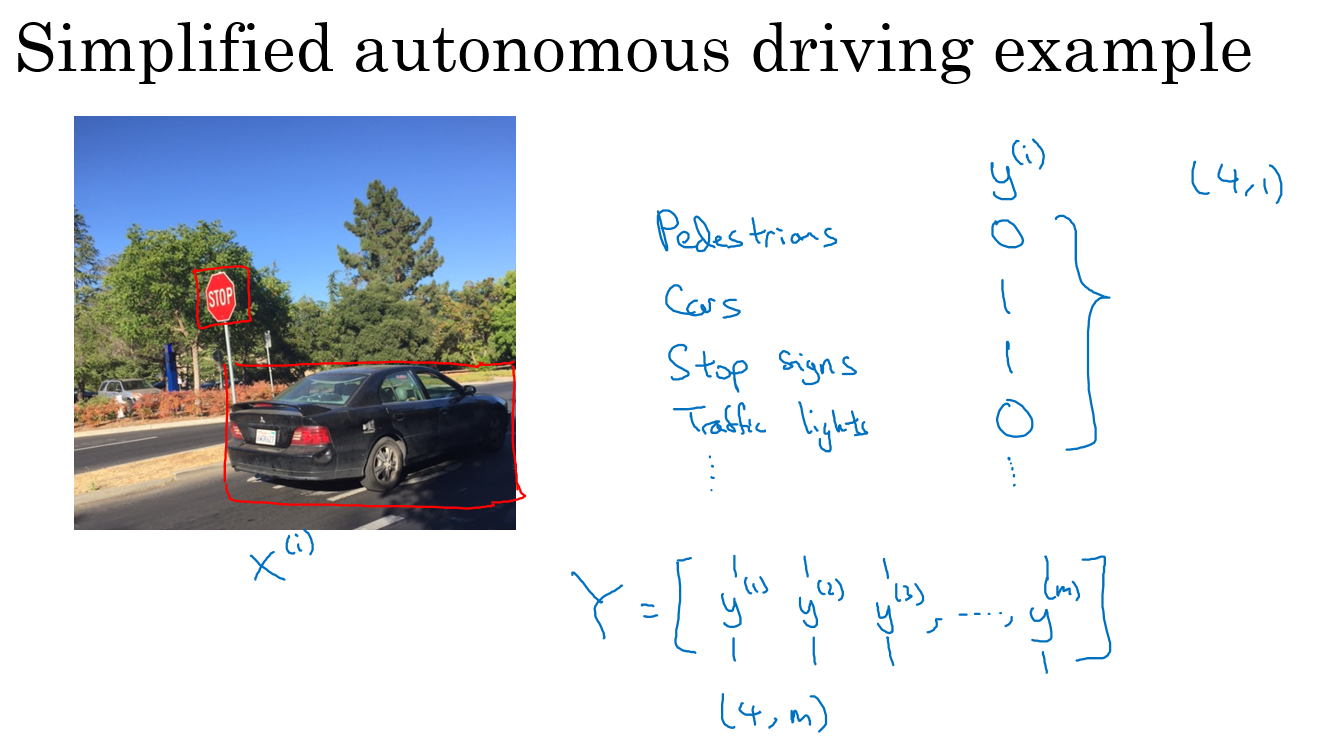 Simplified autonomous driving example
y^(i) (4,1)
Pedestrians 0
Cars 1
STOP
Stop signs 1
Traffic lights 0
⋮ ⋮
x^(i)
Y = [ y^(1) y^(2) y^(3), ...., y^(m) ]
(4, m)